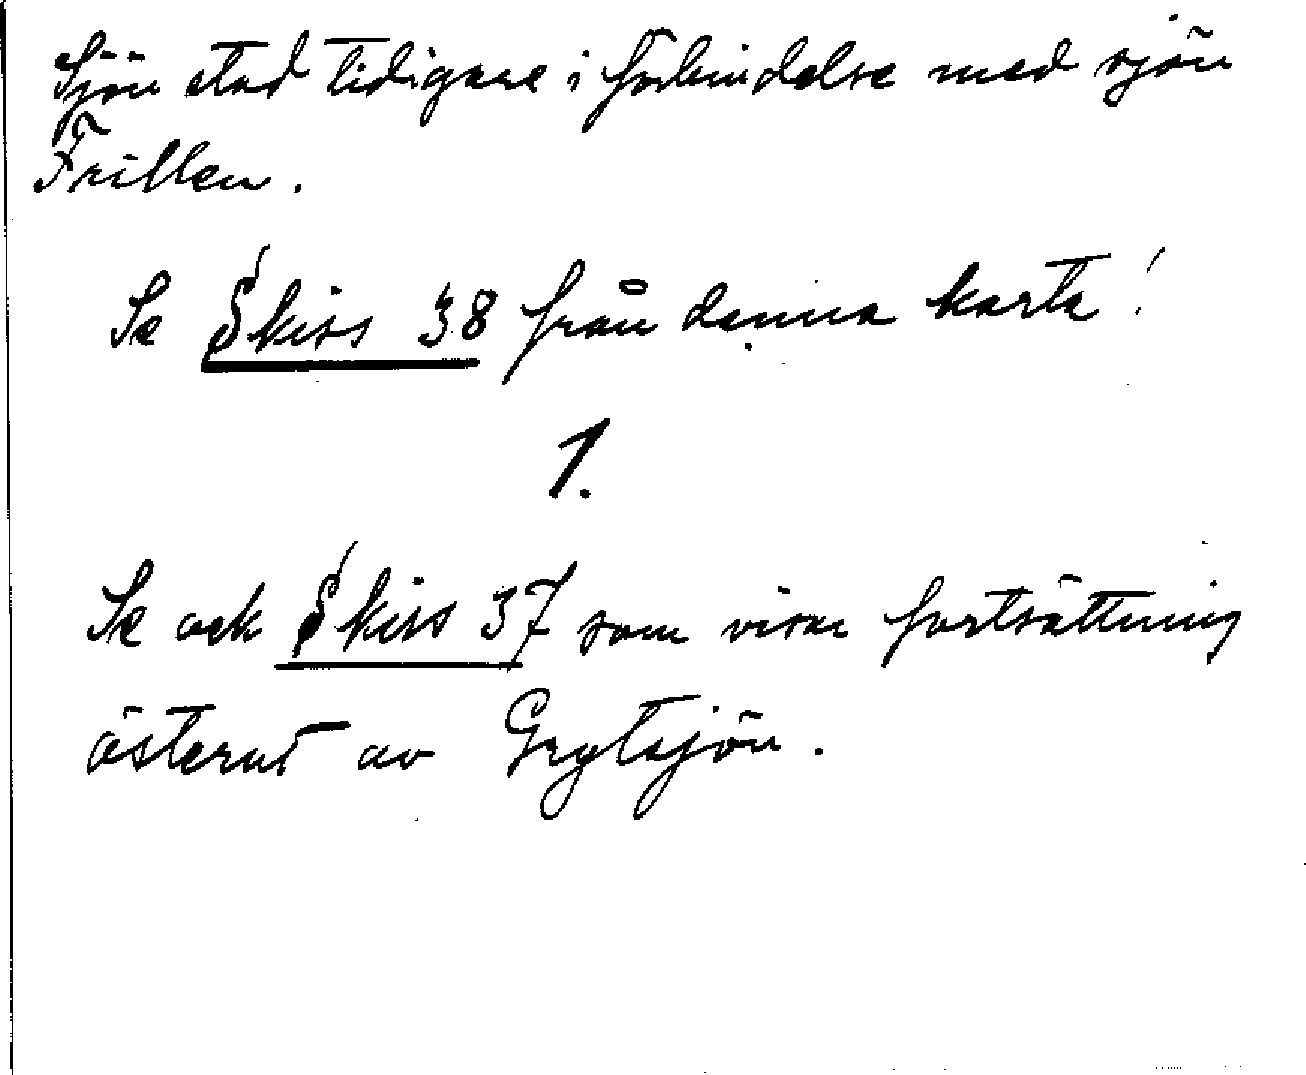 Sjön stod tidigare i förbindelse med sjön
Frillen.
Se Skiss 38 från denna karta!
1.
Se ock Skiss 37 som visar fortsättning
österut av Grytsjön.